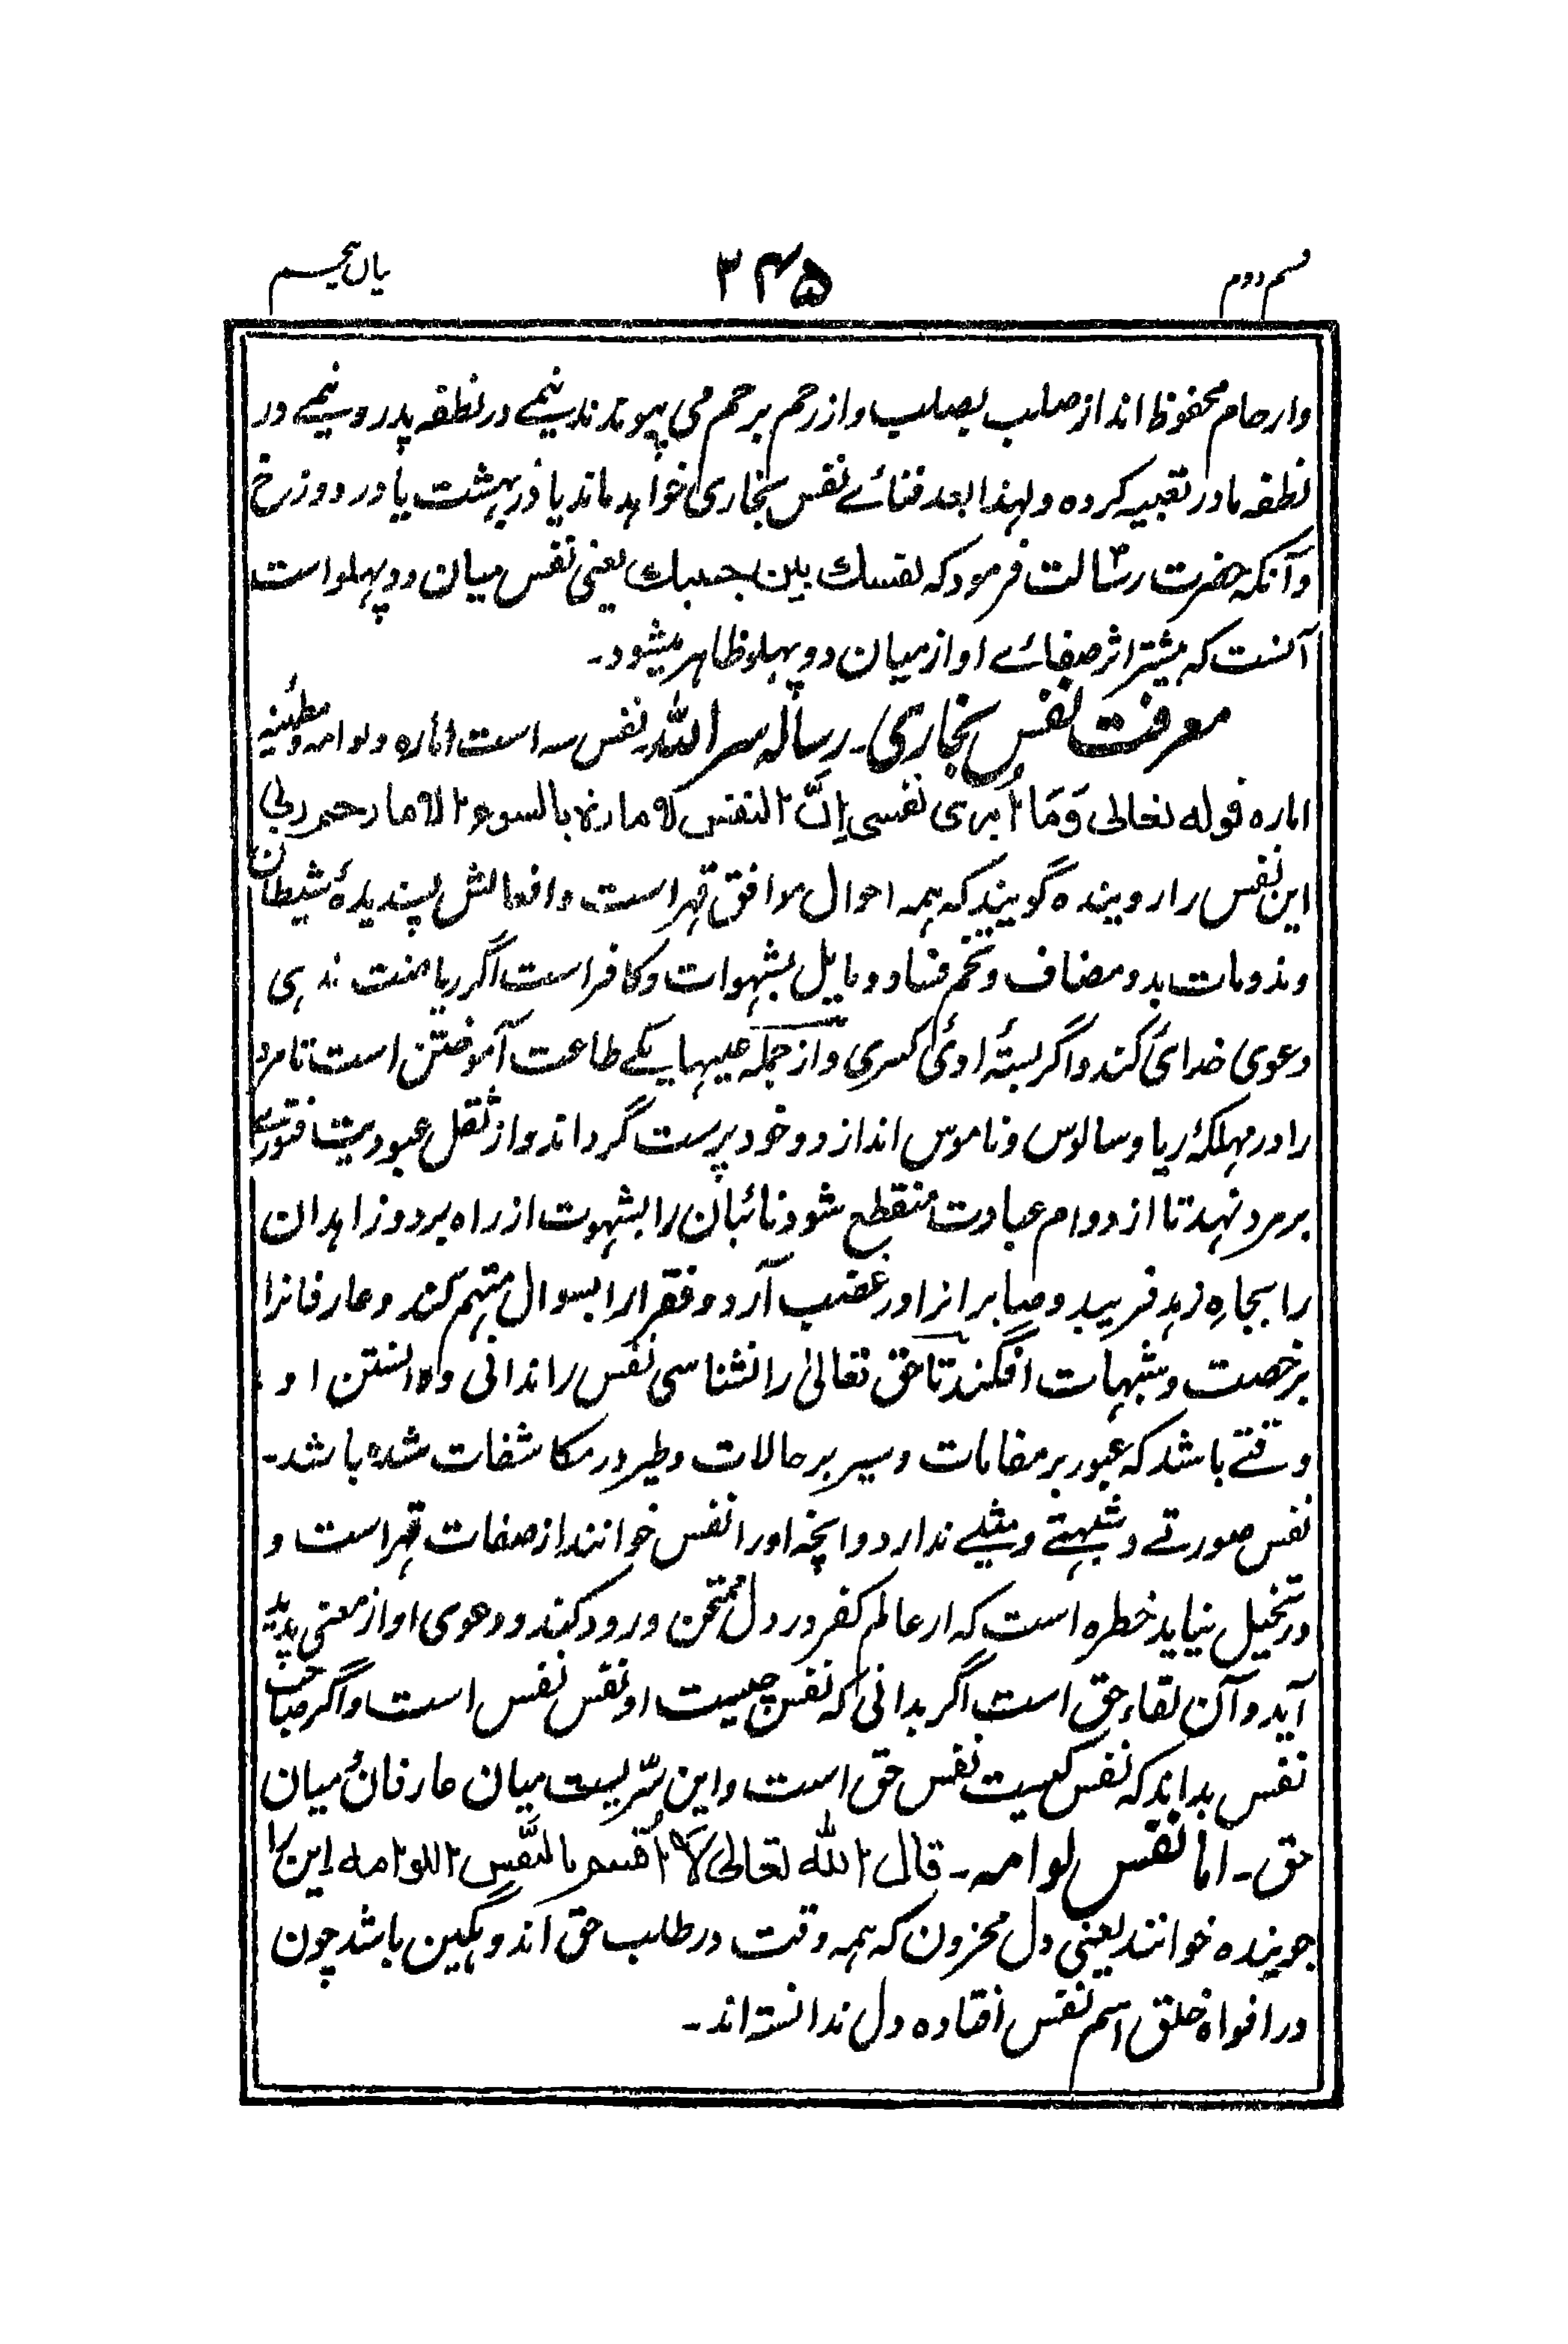 قسم دوم
۳۴۵
بیان پنجم
وارحام محفوظ اند از صلب بصلب و از رحم برحم می پیوندند نیمے در نطفه پدر و نیمے در
نطفه مادر تعبیه کرده و لهذا بعد فنائے نفس بخاری خواهد ماند یا در بهشت یا در دوزخ
و آنکه حضرت رسالت فرمود که نفسك بین جنبیك یعنی نفس میان دو پهلو است
آنست که بیشتر اثر صفائے او از میان دو پهلو ظاهر میشود۔
معرفت نفس بخاری۔ رساله سر الله۔ نفس سه است اماره و لوامه و مطمئنه
اماره قوله تعالی وَمَا اُبری نفسی اِنَّ النفس لامارة بالسوء الا ما رحم ربی
این نفس را روینده گویند که همه احوال موافق قهر است و افعالش پسندیدهٔ شیطان
و مذمومات بدو مضاف و تخم فساد و مایل بشهوات و کافر است اگر ریاضت ندهی
دعوی خدائ کند و از جمله عیبها یکے طاعت آموختن است تا مرد
را در مهلکهٔ ریا و سالوس و ناموس اندازد و خود پرست گرداند و از ثقل عبودیت فتورے
بر مرد نهد تا از دوام عبادت منقطع شود تائبان را بشهوت از راه برد و زاهدان
را بجاهِ زهد فریبد و صابرانرا در غضب آرد و فقرا را بسوال متهم کند و عارفانرا
برخصت و شبهات افگند تا حق تعالیٰ را نشناسی نفس را ندانی و دانستن او
وقتے باشد که عبور بر مقامات و سیر بر حالات و طیر در مکاشفات شده باشد۔
نفس صورتے و شبهتے و مثلے ندارد و انچه او را نفس خوانند از صفات قهر است و
در تخیل نیاید خطره است که از عالم کفر در دل ممتحن ورود کند و دعوی او از معنی پدید
آید و آن لقاء حق است اگر بدانی که نفس چیست او نفس نفس است و اگر صاحب
نفس بداند که نفس کیست نفس حق است و این سرّیست میان عارفان و میان
حق۔ اما نفس لوامه۔ قال الله تعالیٰ لَا اُقسم بالنَّفس اللوامه این را
جوینده خوانند یعنی دل محزون که همه وقت در طلب حق اندوهگین باشد چون
در افواه خلق اسم نفس افتاده دل ندانسته اند۔